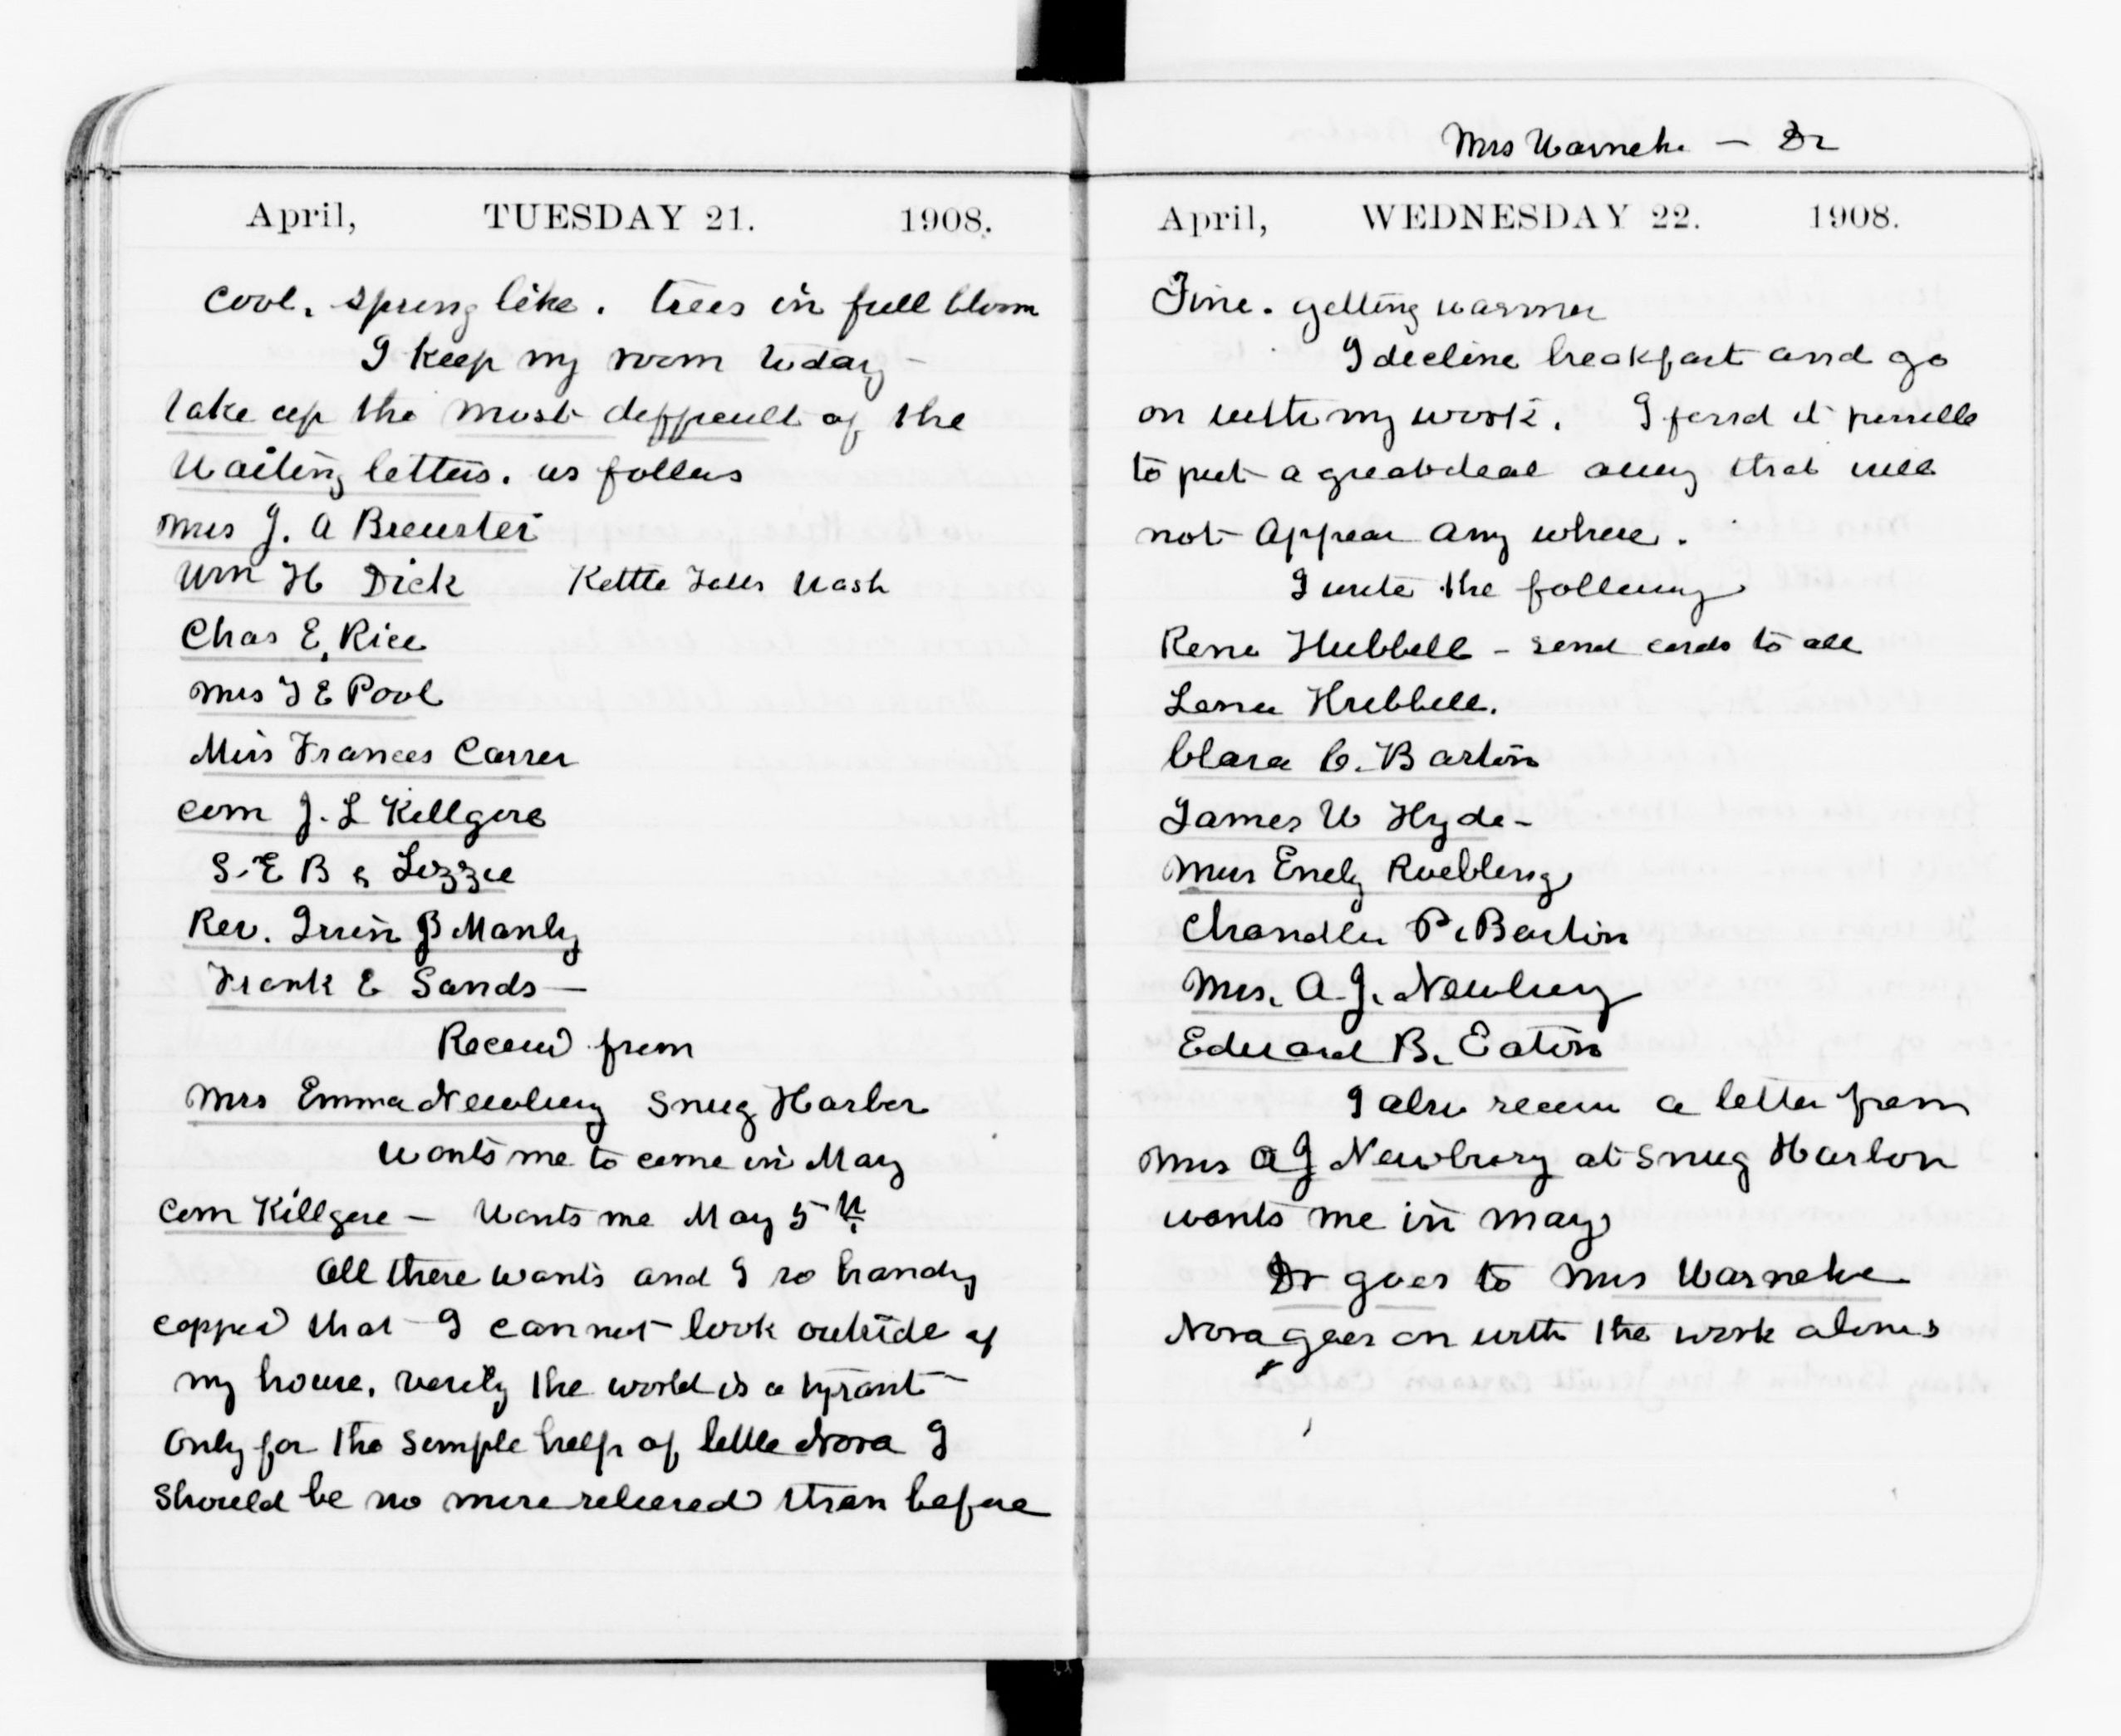 April, TUESDAY 21. 1908.
Cool, spring like. trees in full bloom
I keep my room today -
take up the most difficult of the
Waiting letters. as follows
Mrs J. A Brewster
Wm H Dick Kettle Falls Wash
Chas E. Rice
Mrs J E Pool
Miss Frances Carrer
Com J. L Killgore
S. E B & Lizzie
Rev. Irvin B Manly
Frank E Sands -
Received from
Mrs Emma Newbury Snug Harbor
Wants me to come in May
Com Killgore - Wants me May 5th
All these wants and I so handy
capped that I cannot look outside of
my house. verily the world is a tyrant -
Only for the simple help of little Nora I
should be no more relieved than before
Mrs Warneke - Dr
April, WEDNESDAY 22. 1908.
Fine. getting warmer
I decline breakfast and go
on with my work. I find it possible
to put a great deal away that will
not appear any where.
I write the following
Rena Hubbell - send cards to all
Lena Hubbell.
Clara C. Barton
James W Hyde -
Miss Emily Roebling
Chandler P. Barton
Mrs. A. J. Newbury
Edward B. Eaton
I also receive a letter from
Mrs A J Newbury at Snug Harbor
wants me in May
Dr goes to Mrs Warneke
Nora goes on with the work alone